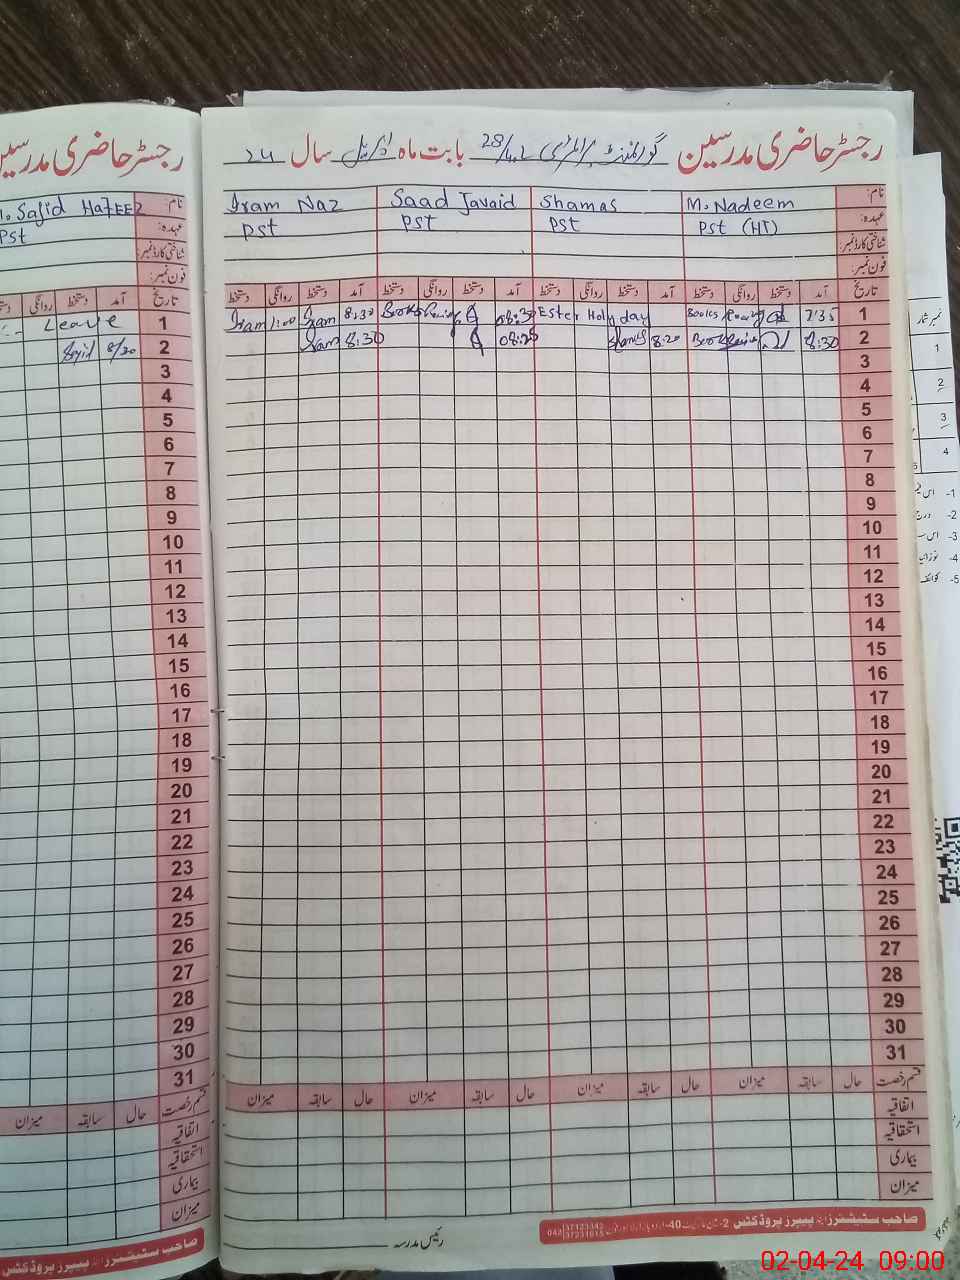 رجسٹر حاضری مدرسین گورنمنٹ پرائمری 28/4.L بابت ماہ اپریل سال 24
نام: M. Nadeem Shamas Saad Javaid Iram Naz
عہدہ: PST (HT) PST PST PST
شناختی کارڈ نمبر:
فون نمبر:
تاریخ آمد دستخط روانگی دستخط آمد دستخط روانگی دستخط آمد دستخط روانگی دستخط آمد دستخط روانگی دستخط
1 7:35 Books Ester Holyday 08:30 Books 8:30 Iram 1:00 Iram
2 8:30 Book 8:20 Shams 08:25 8:30 Iram
3
4
5
6
7
8
9
10
11
12
13
14
15
16
17
18
19
20
21
22
23
24
25
26
27
28
29
30
31
قسم رخصت حال سابقہ میزان حال سابقہ میزان حال سابقہ میزان حال سابقہ میزان
اتفاقیہ
استحقاقیہ
بیماری
میزان
صاحب سٹیشنرز اینڈ پیپرز پروڈکٹس
37123342
042 37231015
رئیس مدرسہ
رجسٹر حاضری مدرسین
نام: Sajid Hafeez
عہدہ: PST
شناختی کارڈ نمبر:
فون نمبر:
تاریخ آمد دستخط روانگی
1 Leave
2 8/30 Sajid
3
4
5
6
7
8
9
10
11
12
13
14
15
16
17
18
19
20
21
22
23
24
25
26
27
28
29
30
31
قسم رخصت حال سابقہ میزان
اتفاقیہ
استحقاقیہ
بیماری
میزان
صاحب سٹیشنرز اینڈ پیپرز پروڈکٹس
نمبر شمار
1
2
3
4
1-
2- درج
3- اس
4-
5- کوائف
02-04-24 09:00